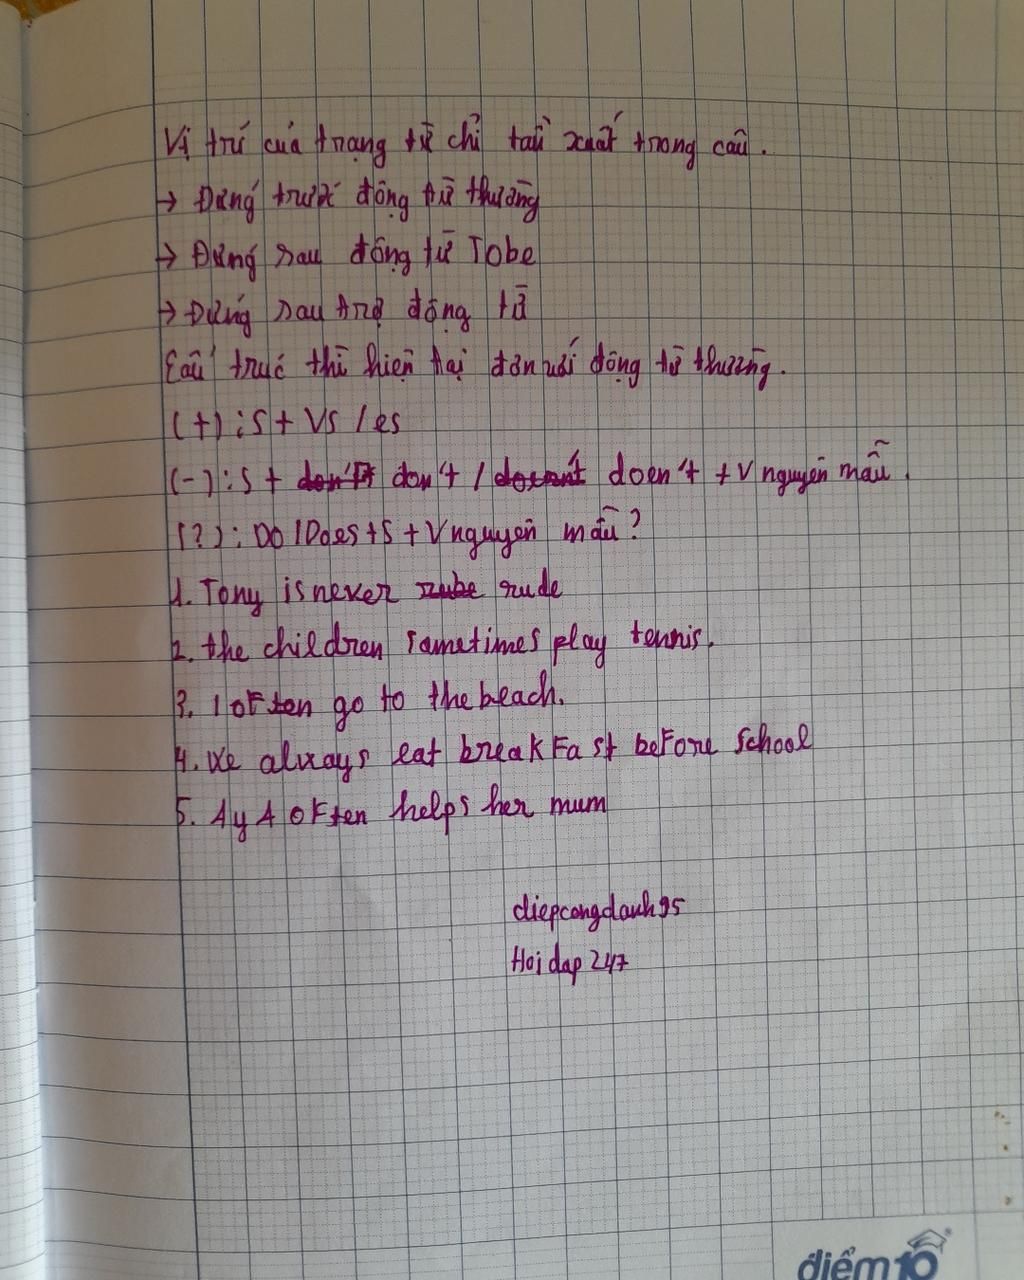 Vị trí của trạng từ chỉ tần xuất trong câu.
→ Đứng trước động từ thường
→ Đứng sau động từ Tobe
→ Đứng sau trợ động từ
Cấu trúc thì hiện tại đơn với động từ thường.
(+): S + Vs / es
(-): S + don't / doen't + V nguyên mẫu.
(?): DO / Does + S + V nguyên mẫu?
1. Tony is never rude
2. the children sometimes play tennis.
3. I often go to the beach.
4. We always eat breakfast before school
5. AyA often helps her mum
diepcongdanh95
Hoidap247
điểm10